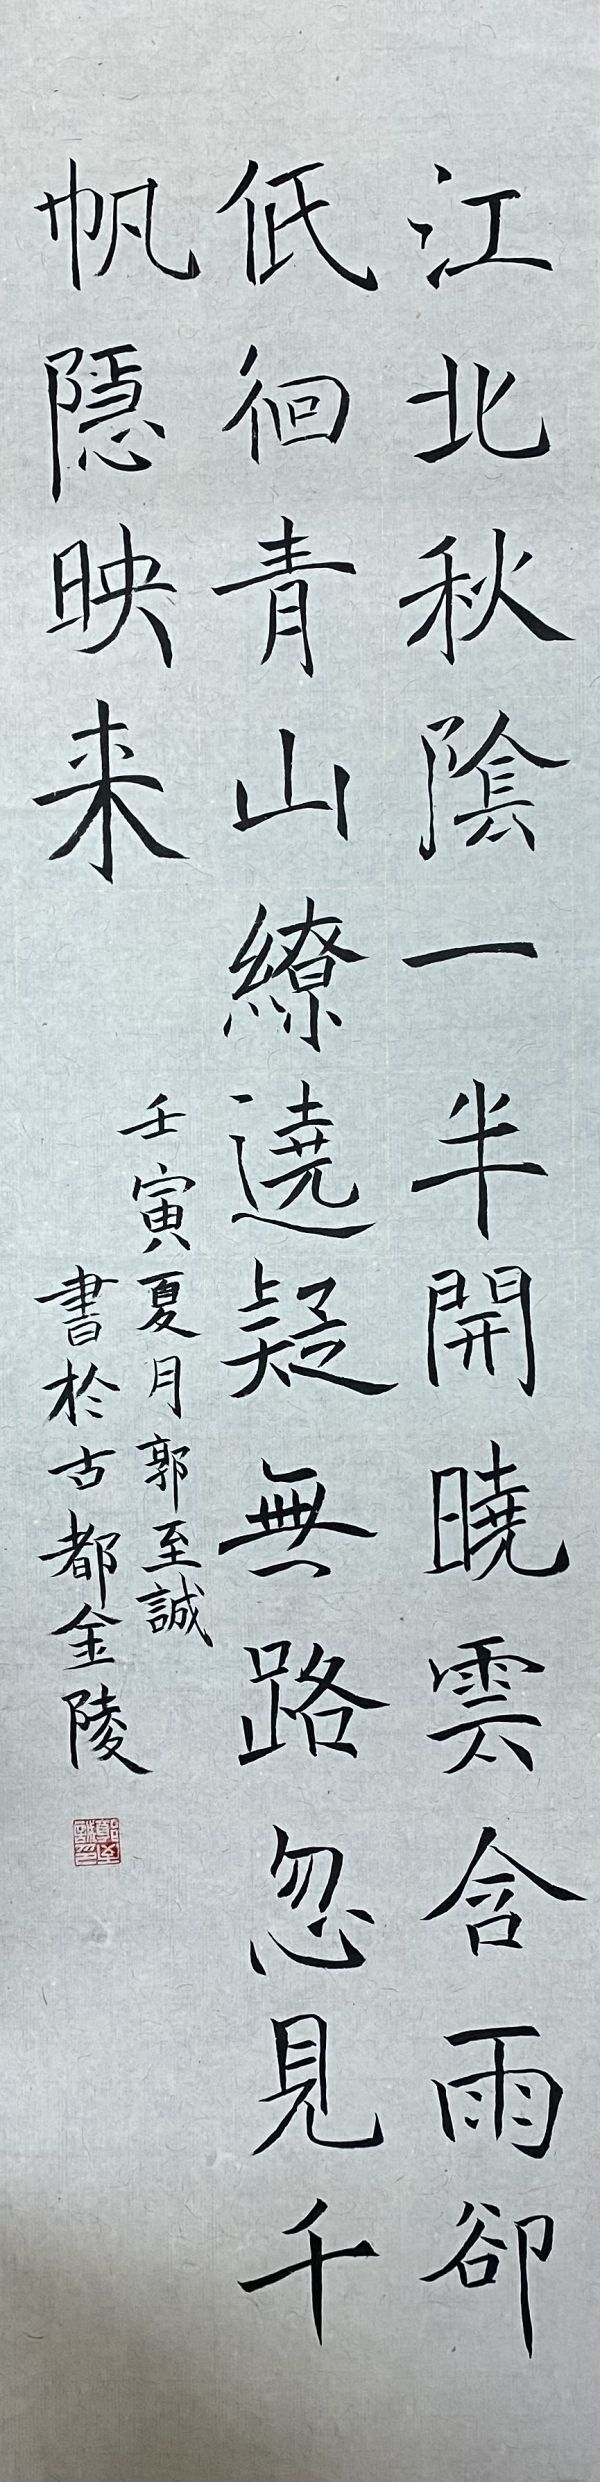 江北秋陰一半開曉雲含雨卻
低徊青山繚遶疑無路忽見千
帆隱映来
壬寅夏月郭至誠
書於古都金陵
郭至誠印